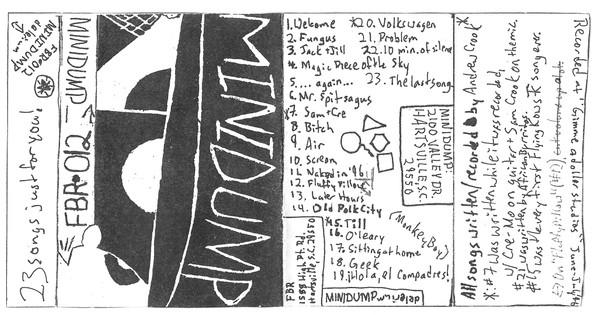 23 songs just for you!
FBR 012
MINIDUMP
MINIDUMP
FBR•012
MINIDUMP
1. Welcome
2. Fungus
3. Jack + Jill
4. Magic Piece of the Sky
5. ....again...
6. Mr. Spitsagus
*7. Sam + Cre
8. Bitch
9. Air
10. Scream
11. Naked in '96
12. Fluffy Pillow
13. Later Hours
14. Old Folk City
*15. Till
16. O'leary
17. Sitting at home
18. Geek
19. ¡Hola, el Compadres!
(Monkey Boy)
*20. Volkswagen
21. Problem
22. 10 min. of silence
23. The last song
MINIDUMP:
2100 VALLEY DR.
HARTSVILLE S.C.
29550
FBR
1588 High Pt. Rd.
Hartsville, S.C. 29550
MINIDUMP
All songs written/recorded by Andrew Crook*
X: #7 was written while it was recorded,
w/ Cre-Mo on guitar + Sam Crook on the mic.
#21 was written by
#15 was the very first Flying Kows TK song ever.
Recorded at "Gimme a dollar studios"